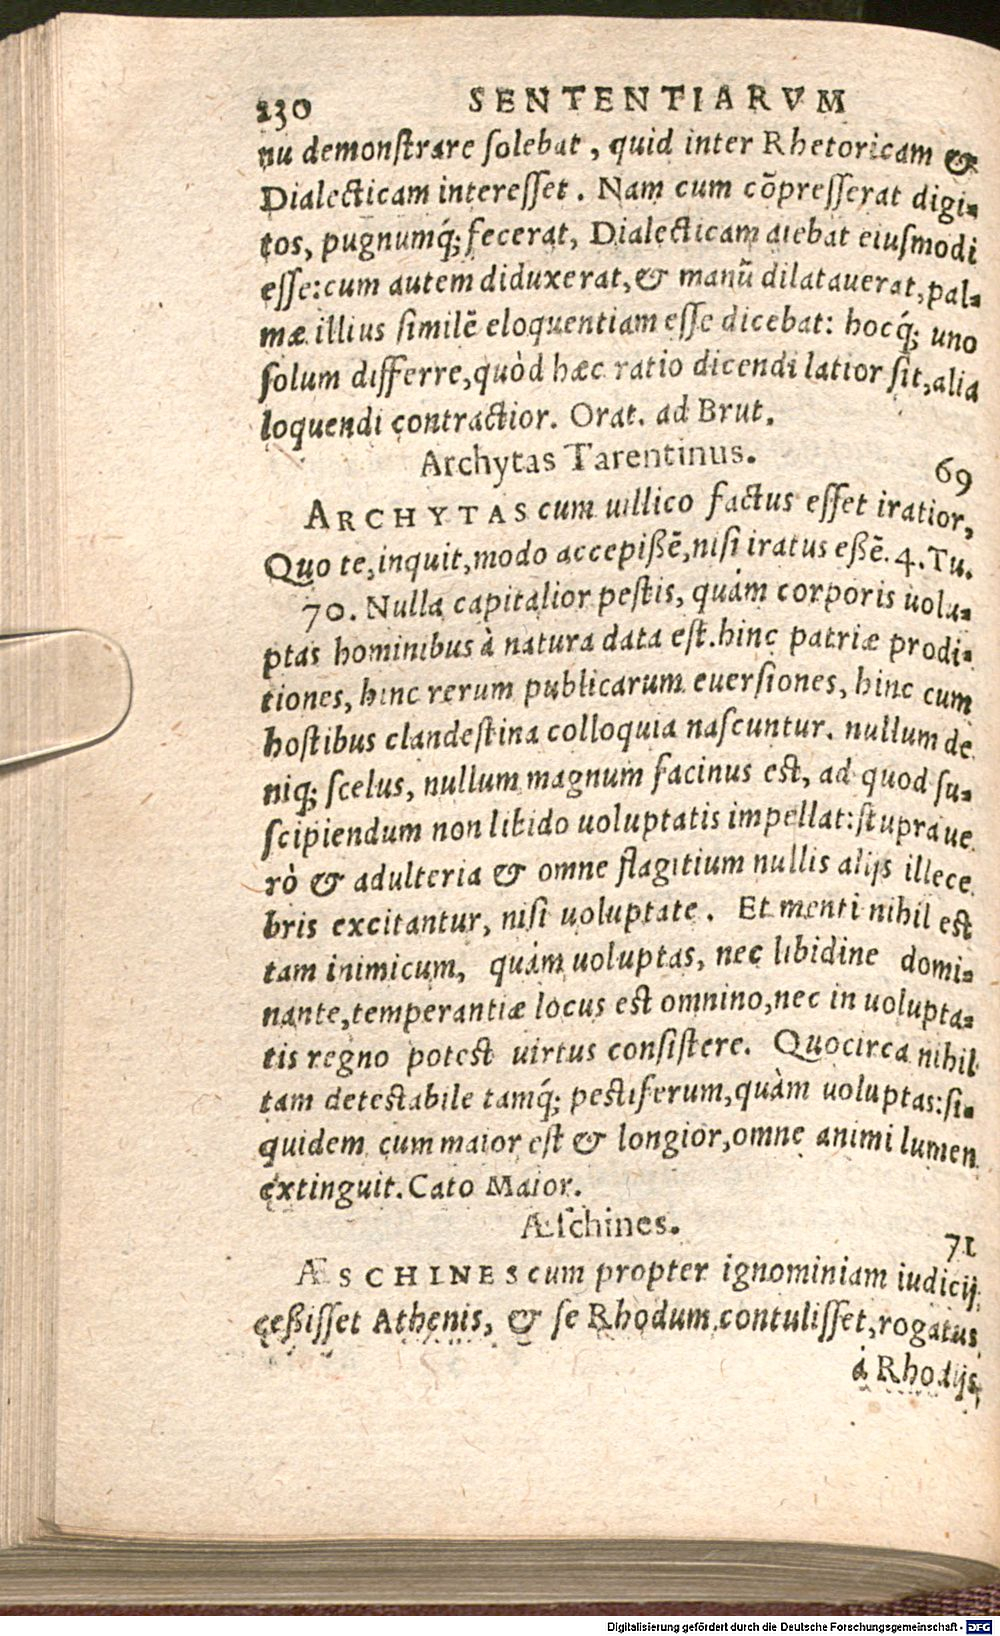 230 SENTENTIARVM
nu demonſtrare ſolebat, quid inter Rhetoricam &
Dialecticam intereſſet. Nam cum cõpreſſerat digi-
tos, pugnumq́; fecerat, Dialecticam aiebat eiuſmodi
eſſe: cum autem diduxerat, & manũ dilatauerat, pal-
mæ illius ſimilẽ eloquentiam eſſe dicebat: hocq́; uno
ſolum differre, quòd hæc ratio dicendi latior ſit, alia
loquendi contractior. Orat. ad Brut.
Archytas Tarentinus. 69
ARCHYTAS cum uillico factus eſſet iratior,
Quo te, inquit, modo accepißẽ, niſi iratus eßẽ. 4. Tu.
70. Nulla capitalior peſtis, quàm corporis uolu-
ptas hominibus à natura data eſt. hinc patriæ prodi-
tiones, hinc rerum publicarum euerſiones, hinc cum
hoſtibus clandeſtina colloquia naſcuntur. nullum de
niq; ſcelus, nullum magnum facinus eſt, ad quod ſu-
ſcipiendum non libido uoluptatis impellat: ſtupra ue
rò & adulteria & omne flagitium nullis alijs illece
bris excitantur, niſi uoluptate. Et menti nihil eſt
tam inimicum, quàm uoluptas, nec libidine domi-
nante, temperantiæ locus eſt omnino, nec in uolupta-
tis regno poteſt uirtus conſiſtere. Quocirca nihil
tam deteſtabile tamq́; peſtiferum, quàm uoluptas: ſi-
quidem cum maior eſt & longior, omne animi lumen
extinguit. Cato Maior.
Æſchines. 71
ÆSCHINES cum propter ignominiam iudicij
ceßiſſet Athenis, & ſe Rhodum contuliſſet, rogatus
à Rhodijs,
Digitalisierung gefördert durch die Deutsche Forschungsgemeinschaft - DFG